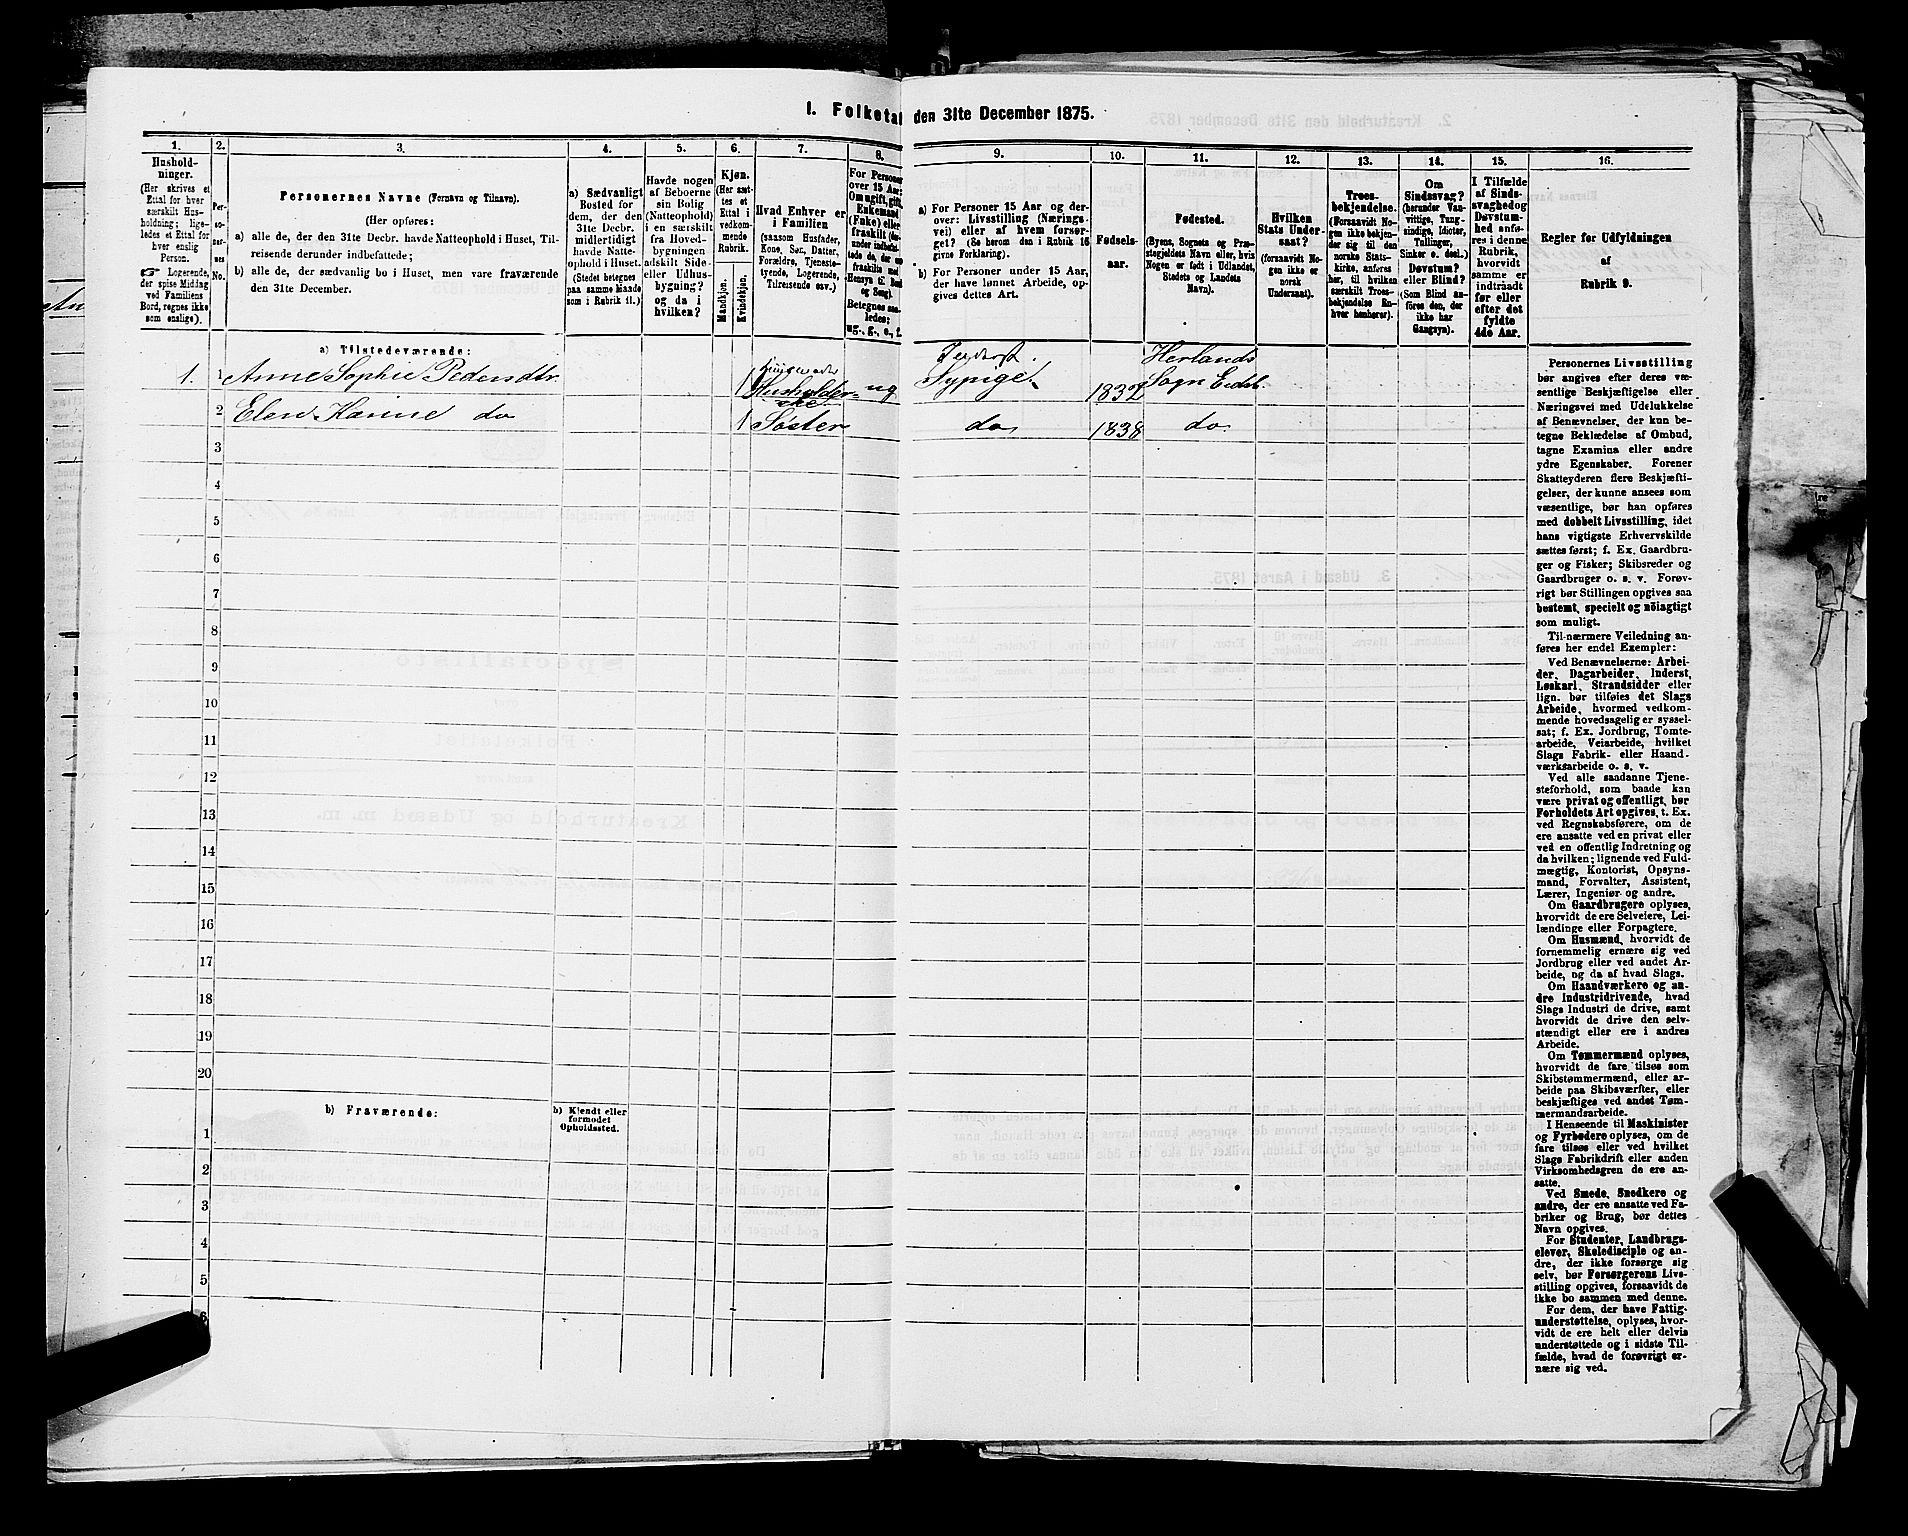 I. Folketal den 31te December 1875.
1.
2.
3.
4.
5.
6.
7.
8.
9.
10.
11.
12.
13.
14.
15.
16.
Hushold-
ninger.
(Her skrives et
Ettal for hver
særskilt Hus-
holdning; lige-
ledes et Ettal for
hver enslig
Person.
Logerende,
der spise Middag
ved Familiens
Bord, regnes ikke
som enslige).
Per-
so-
ner-
nes
No.
Personernes Navne (Fornavn og Tilnavn).
(Her opføres:
a) alle de, der den 31te Decbr. havde Natteophold i Huset, Til-
reisende derunder indbefattede;
b) alle de, der sædvanlig bo i Huset, men vare fraværende
den 31te December.
a) Sædvanligt
Bosted for
dem, der den
31te Decbr.
midlertidigt
havde Natte-
ophold i Huset.
(Stedet betegnes
paa samme Maade
som i Rubrik 11.)
Havde nogen
af Beboerne
sin Bolig
(Natteophold)
i en særskilt
fra Hoved-
bygningen
adskilt Side-
eller Udhus-
bygning?
og da i
hvilken?
Kjøn.
(Her sæt-
tes et
Ettal i
vedkom-
mende
Rubrik.
Mandkjøn.
Kvindekjøn.
Hvad Enhver er
i Familien
(saasom Husfader,
Kone, Søn, Datter,
Forældre, Tjeneste-
tyende, Logerende,
Tilreisende osv.)
For Personer
over 15 Aar:
Om ugift, gift,
Enkemand
(Enke) eller
fraskilt
Betegnes saa-
ledes:
ug., g., e., f.
a) For Personer 15 Aar og der-
over: Livsstilling (Nærings-
vei) eller af hvem forsør-
get? (Se herom den i Rubrik 16
givne Forklaring).
b) For Personer under 15 Aar,
der have lønnet Arbeide, op-
gives dettes Art.
Fødsels-
aar.
Fødested.
(Byens, Sognets og Præ-
stegjeldets Navn eller, hvis
Nogen er født i Udlandet,
Stedets og Landets
Navn).
Hvilken
Stats Under-
saat?
(forsaavidt No-
gen ikke er
norsk
Undersaat).
Troes-
bekjendelse.
(Forsaavidt No-
gen ikke bekjen-
der sig til den
norske Stats-
kirke, anføres
her, til hvilken
særskilt Troes-
bekjendelse En-
hver henhører).
Om
Sindssvag?
(herunder Van-
vittige, Tung-
sindige, Idioter,
Tullinger,
Sinker o. desl.).
Døvstum?
eller Blind?
(Som Blind an-
føres den, der
ikke har
Gangsyn).
I Tilfælde
af Sinds-
svaghed og
Døvstum-
hed anfø-
res i denne
Rubrik,
hvorvidt
samme er
indtraadt
før eller
efter det
fyldte
4de Aar.
Regler for Udfyldningen
af
Rubrik 9.
a) Tilstedeværende:
1. 1 Anne Sophie Pedersdtr. 1 Husholder-
ske ug Sypige 1832 Herlands
Sogn Eidsb.
2 Elen Karine do 1 Søster do 1838 do
3
4
5
6
7
8
9
10
11
12
13
14
15
16
17
18
19
20
b) Fraværende:
b) Kjendt eller
formodet
Opholdssted.
1
2
3
4
5
6
Personernes Livsstilling
bør angives efter deres væ-
sentlige Beskjæftigelse eller
Næringsvei med Udelukkelse
af Benævnelser, der kun be-
tegne Beklædelse af Ombud,
tagne Examina eller andre
ydre Egenskaber. Forener
Skatteyderen flere Beskjæfti-
gelser, der kunne ansees som
væsentlige, bør han opføres
med dobbelt Livsstilling, idet
hans vigtigste Erhvervskilde
sættes først; f. Ex. Gaardbru-
ger og Fisker; Skibsreder og
Gaardbruger o. s. v. Forøv-
rigt bør Stillingen opgives saa
bestemt, specielt og nöiagtigt
som muligt.
Til nærmere Veiledning an-
føres her endel Exempler:
Ved Benævnelserne: Arbei-
der, Dagarbeider, Inderst,
Løskarl, Strandsidder eller
lign. bør tilføies det Slags
Arbeide, hvormed vedkom-
mende hovedsagelig er syssel-
sat; f. Ex. Jordbrug, Tomte-
arbeide, Veiarbeide, hvilket
Slags Fabrik- eller Haand-
værksarbeide o. s. v.
Ved alle saadanne Tjene-
steforhold, som baade kan
være privat og offentligt, bør
Forholdets Art opgives, t. Ex.
ved Regnskabsførere, om de
ere ansatte ved en privat eller
ved en offentlig Indretning og
da hvilken; lignende ved Fuld-
mægtig, Kontorist, Opsyns-
mand, Forvalter, Assistent,
Lærer, Ingeniør og andre.
Om Gaardbrugere oplyses,
hvorvidt de ere Selveiere, Lei-
lændinge eller Forpagtere.
Om Husmænd, hvorvidt de
fornemmelig ernære sig ved
Jordbrug eller ved andet Ar-
beide, og da af hvad Slags.
Om Haandværkere og an-
dre Industridrivende, hvad
Slags Industri de drive, samt
hvorvidt de drive den selv-
stændigt eller ere i andres
Arbeide.
Om Tømmermænd oplyses,
hvorvidt de fare tilsøs som
Skibstømmermænd, eller ar-
beide paa Skibsværfter, eller
beskjæftiges ved andet Tøm-
mermandsarbeide.
I Henseende til Maskinister
og Fyrbødere oplyses, om de
fare tilsøs eller ved hvilket
Slags Fabrikdrift eller anden
Virksomhedsgren de ere an-
satte.
Ved Smede, Snedkere og
andre, der ere ansatte ved Fa-
briker og Brug, bør dettes
Navn opgives.
For Studenter, Landbrugs-
elever, Skoledisciple og an-
dre, der ikke forsørge sig
selv, bør Forsørgerens Livs-
stilling opgives, forsaavidt de
ikke bo sammen med denne.
For dem, der have Fattig-
understøttelse, oplyses, hvor-
vidt de ere helt eller delvis
understøttede og i sidste Til-
fælde, hvad de forøvrigt er-
nære sig ved.